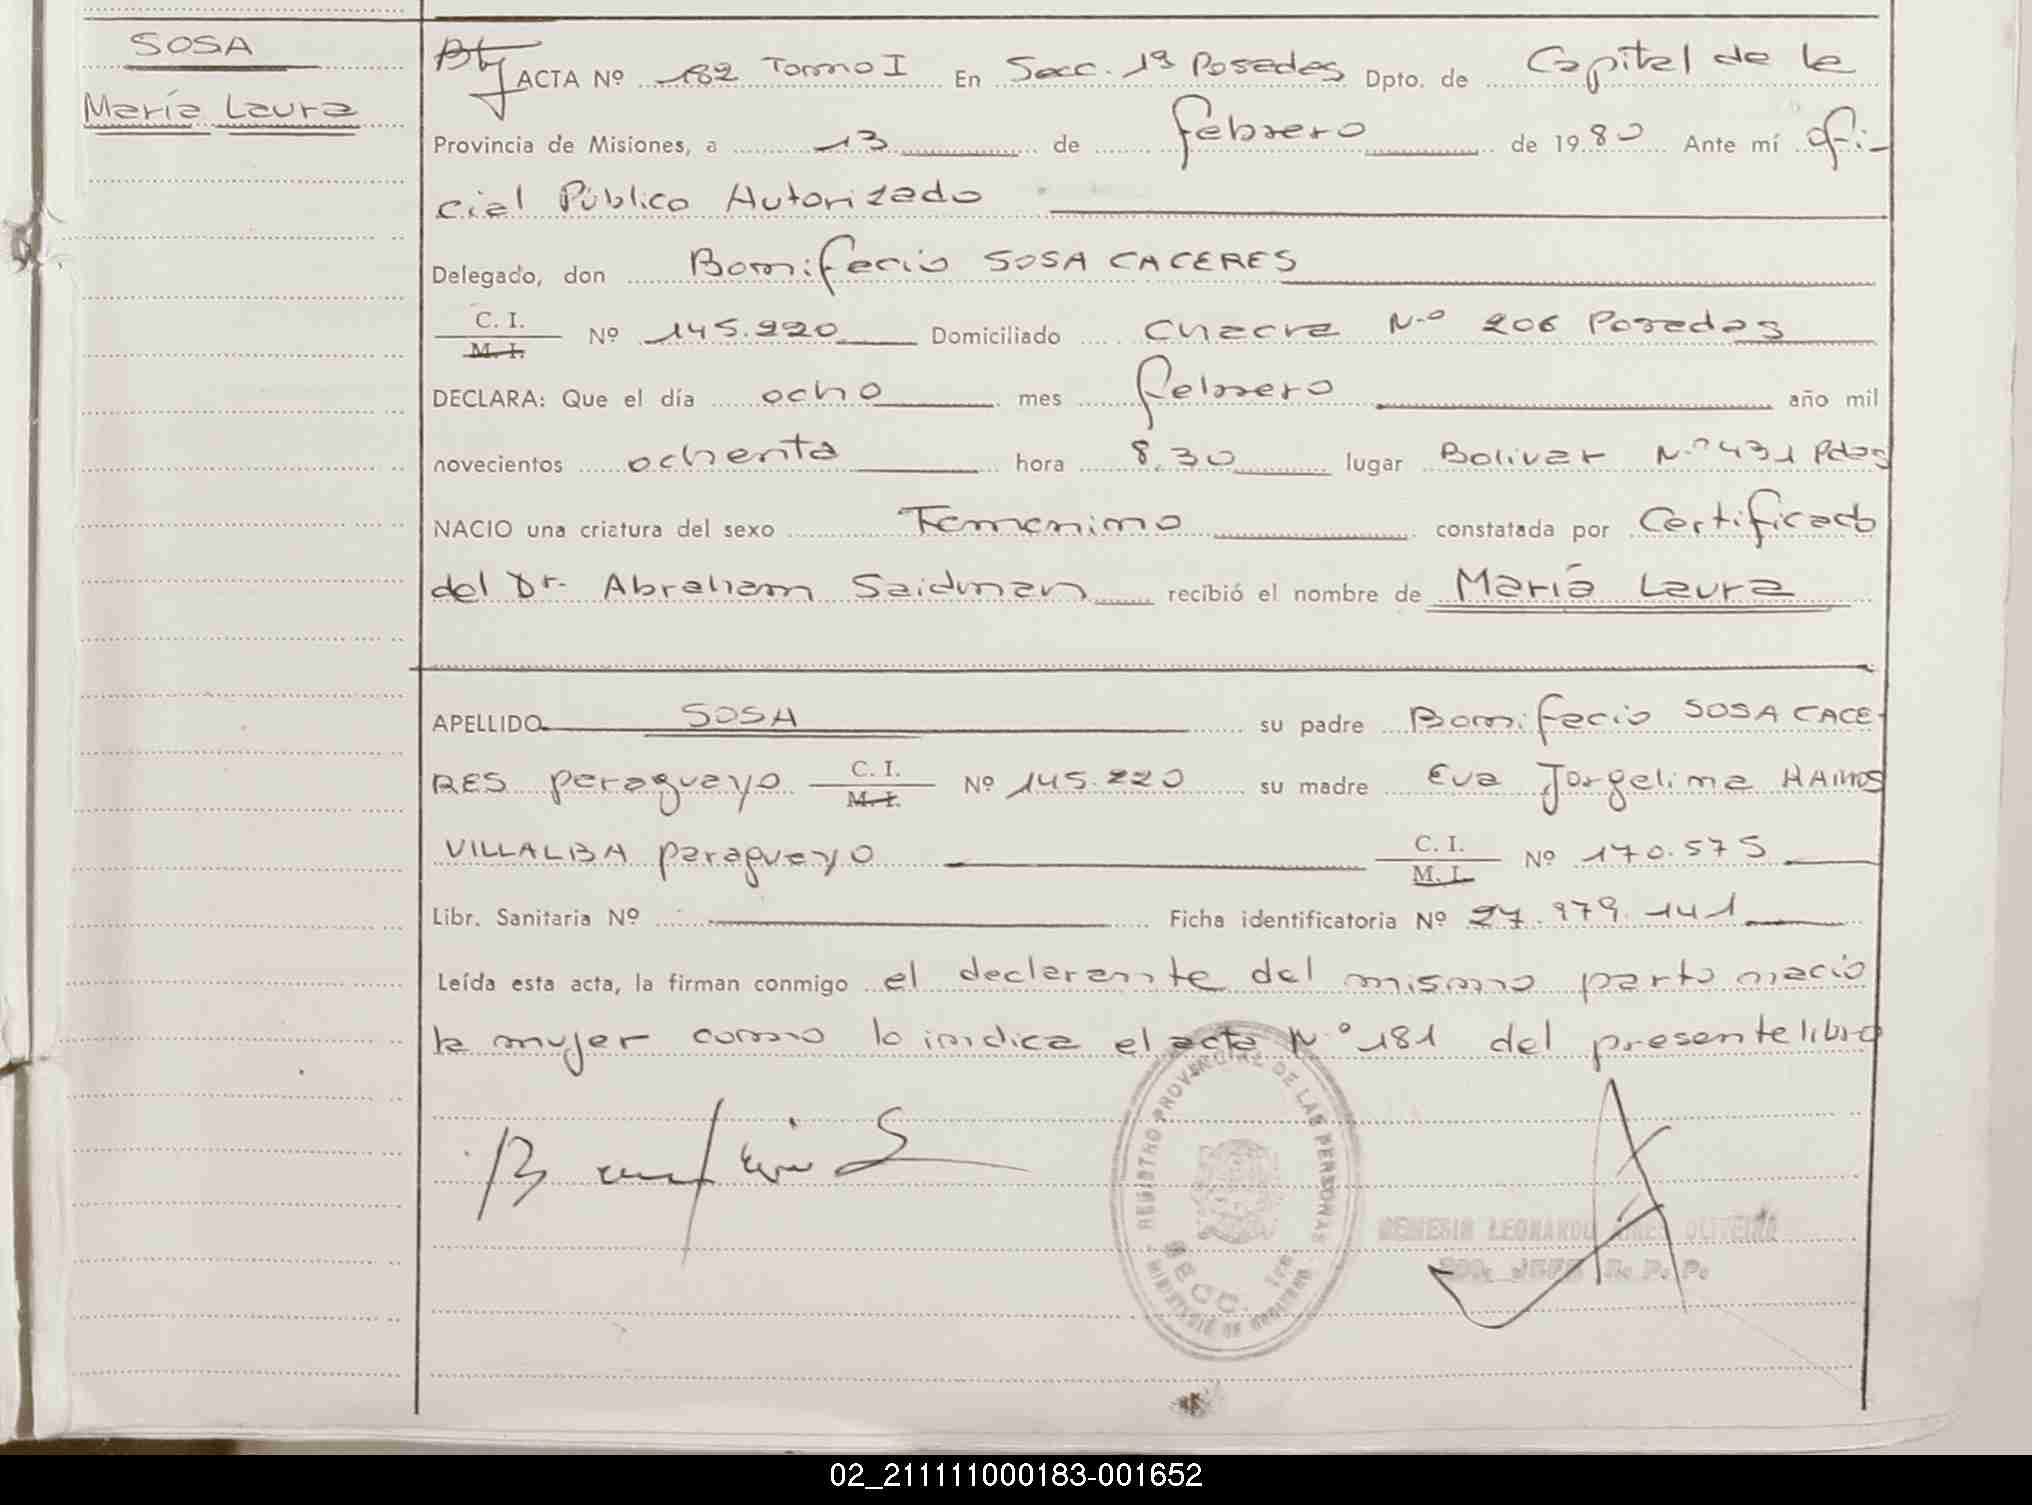 SOSA
María Laura
ACTA Nº 182 Tomo I En Secc. 1ª Posadas Dpto. de Capital de la
Provincia de Misiones, a 13 de febrero de 1980 Ante mí ofi-
cial Público Autorizado
Delegado, don Bonifacio SOSA CACERES
C. I.
M. I.
Nº 145.220 Domiciliado Chacra N.º 206 Posadas
DECLARA: Que el día ocho mes febrero año mil
novecientos ochenta hora 8.30 lugar Bolivar N.º 431 Pdas
NACIO una criatura del sexo Femenino constatada por Certificado
del Dr. Abraham Saidman recibió el nombre de María Laura
APELLIDO SOSA su padre Bonifacio SOSA CACE-
RES paraguayo C. I. M. I. Nº 145.220 su madre Eva Jorgelina
VILLALBA paraguayo C. I. M. I. Nº 170.575
Libr. Sanitaria Nº Ficha identificatoria Nº 27.979.141
Leída esta acta, la firman conmigo el declarante del mismo parto nacio
la mujer como lo indica el acta N.º 181 del presente libro
REGISTRO PROVINCIAL DE LAS PERSONAS
SECC. 1ra.
MINISTERIO DE GOBIERNO
NEMESIO LEONARDO OLIVEIRA
JEFE R. P. P.
02_211111000183-001652